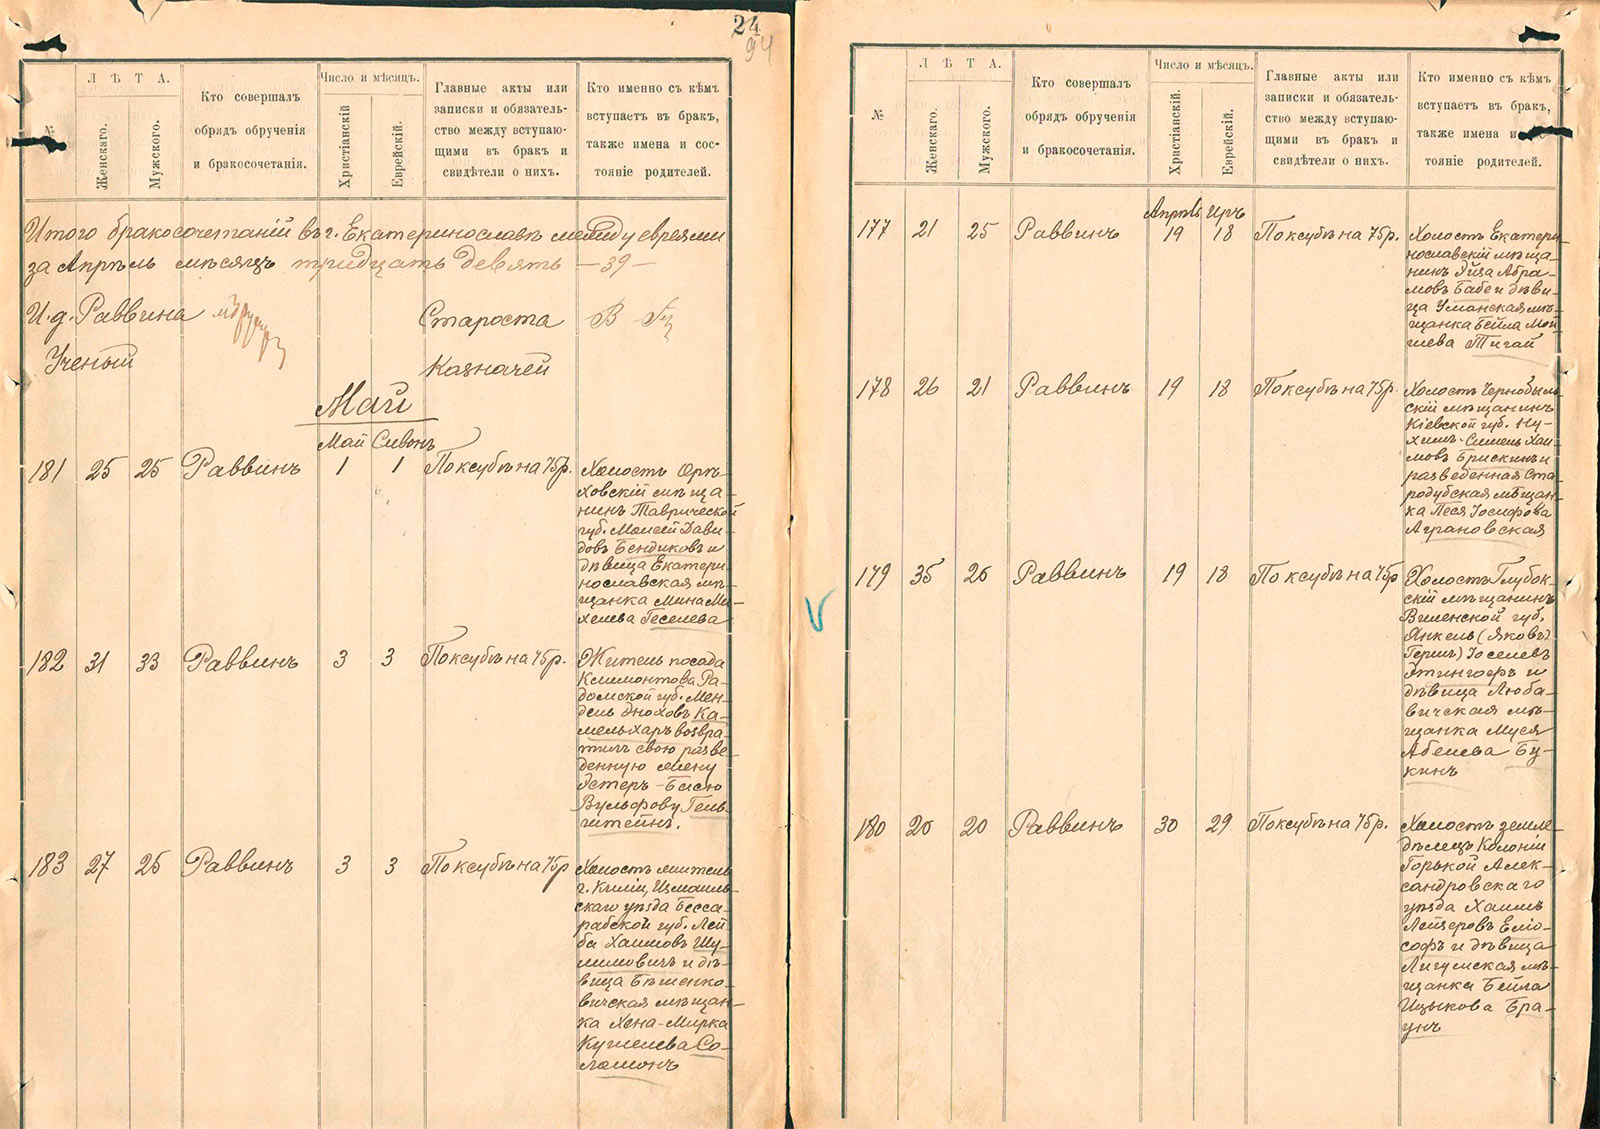 24
94
№
ЛѢТА.
Женскаго.
Мужского.
Кто совершалъ
обрядъ обрученія
и бракосочетанія.
Число и мѣсяцъ.
Христіанскій
Еврейскій.
Главные акты или
записки и обязатель-
ство между вступаю-
щими въ бракъ и
свидѣтели о нихъ.
Кто именно съ кѣмъ
вступаетъ въ бракъ,
также имена и сос-
тояніе родителей.
Итого бракосочетаній въ г. Екатеринославѣ между евреями
за Апрѣль мѣсяцъ тридцать девять —39—
И.д. Раввина Староста
Ученый Казначей
Май
Май Сивонъ
181 25 25 Раввинъ 1 1 По ксубѣ на 75р.
Холостъ Орѣ-
ховскій мѣща-
нинъ Таврической
губ. Моисей Дави-
довъ Бендиковъ и
дѣвица Екатери-
нославская мѣ-
щанка Мина Ми-
хелева Геселева
182 31 33 Раввинъ 3 3 По ксубѣ на 75р.
Житель посада
Климонтова Ра-
домской губ. Мен-
дель Эноховъ Ка-
мельхаръ возвра-
тилъ свою разве-
денную жену
Эстеръ-Басю
Вульфову Гель-
штейнъ.
183 27 25 Раввинъ 3 3 По ксубѣ на 75р
Холостъ житель
г. Киліи, Измаиль-
скаго уѣзда Бесса-
рабской губ. Лей-
ба Хаимовъ Шу-
лимовичъ и дѣ-
вица Бѣшенко-
вичская мѣщан-
ка Хена-Мирка
Кушелева Со-
ломонъ
№
ЛѢТА.
Женскаго.
Мужского.
Кто совершалъ
обрядъ обрученія
и бракосочетанія.
Число и мѣсяцъ.
Христіанскій.
Еврейскій.
Главные акты или
записки и обязатель-
ство между вступаю-
щими въ бракъ и
свидѣтели о нихъ.
Кто именно съ кѣмъ
вступаетъ въ бракъ,
также имена и сос-
тояніе родителей.
Апрѣль Иръ
177 21 25 Раввинъ 19 18 По ксубѣ на 75р.
Холостъ Екатери-
нославскій мѣща-
нинъ Абра-
мовъ Бабе и дѣви-
ца Уманская мѣ-
щанка Бейла Мой-
шева Тигай
178 26 21 Раввинъ 19 18 По ксубѣ на 75р.
Холостъ Чернобыль-
скій мѣщанинъ
Кіевской губ. Ну-
химъ-Симень Хаи-
мовъ Брискинъ и
разведенная Ста-
родубская мѣщан-
ка Песя Іосифова
Аграновская
179 35 26 Раввинъ 19 18 По ксубѣ на 75р
Холостъ Глубок-
скій мѣщанинъ
Виленской губ.
Янкель (Яковъ)
Гершъ) Іоселевъ
Этингофъ и
дѣвица Люба-
вичская мѣ-
щанка Муся
Абелева Бу-
кинъ
180 20 20 Раввинъ 30 29 По ксубѣ на 75р.
Холостъ земле-
дѣлецъ Колоніи
Горькой Алек-
сандровскаго
уѣзда Хаимъ
Лейзеровъ Еліо-
софъ и дѣвица
Лигумская мѣ-
щанка Бейла
Ицыкова Бра-
унъ